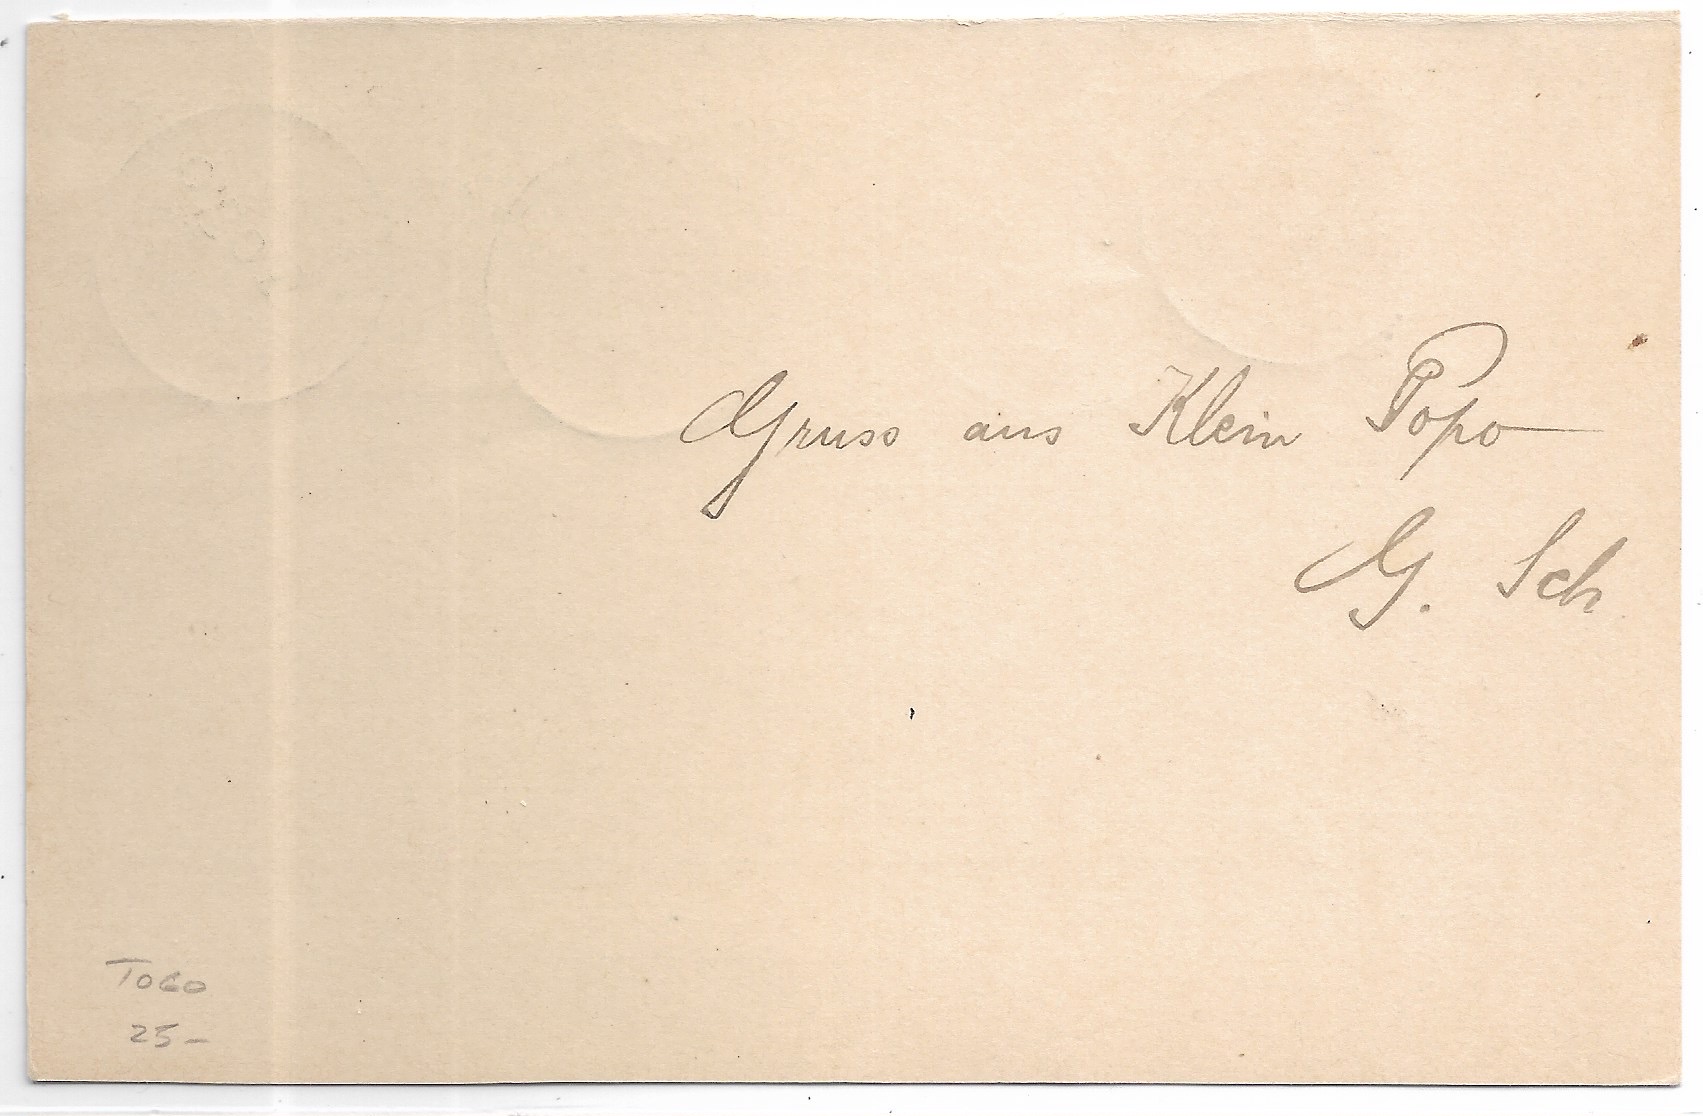 Gruss aus Klein Popo
G. Sch
TOGO
25-